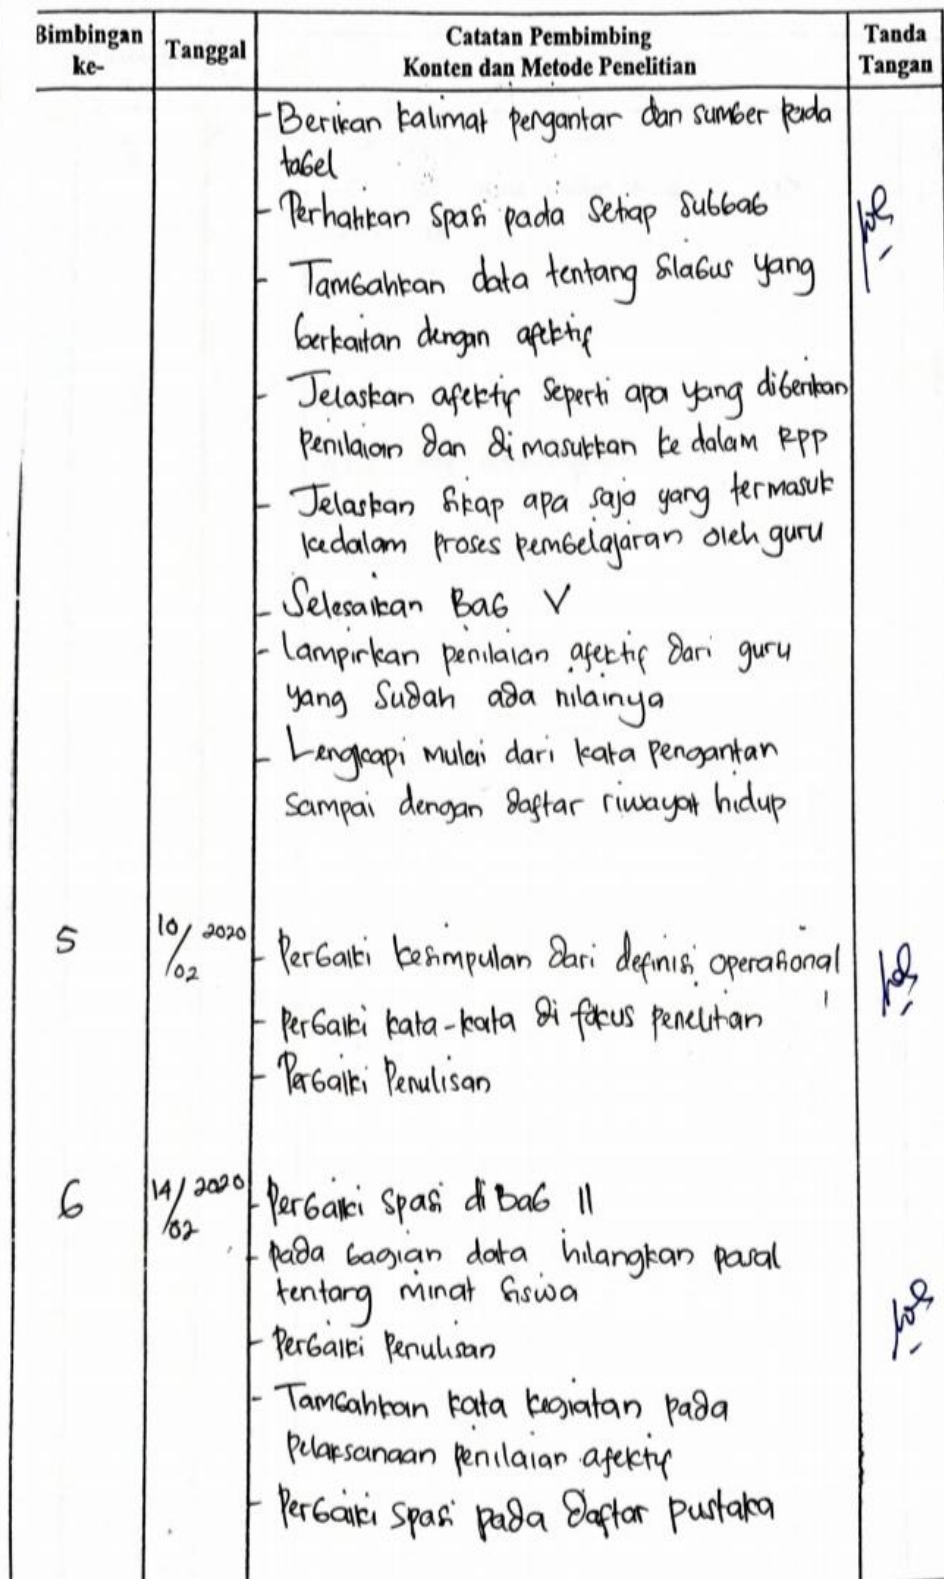 Bimbingan ke-
Tanggal
Catatan Pembimbing
Konten dan Metode Penelitian
Tanda Tangan
- Berikan kalimat pengantar dan sumber pada
tabel
- Perhatikan spasi pada setiap subbab
- Tambahkan data tentang silabus yang
berkaitan dengan afektif
- Jelaskan afektif seperti apa yang diberikan
penilaian dan di masukkan ke dalam RPP
- Jelaskan sikap apa saja yang termasuk
kedalam proses pembelajaran oleh guru
- Selesaikan Bab V
- Lampirkan penilaian afektif dari guru
yang sudah ada nilainya
- Lengkapi mulai dari kata pengantan
sampai dengan daftar riwayat hidup
5
10/02 2020
- Perbaiki kesimpulan dari definisi operasional
- Perbaiki kata-kata di fokus penelitian
- Perbaiki Penulisan
6
14/02 2020
- Perbaiki spasi di Bab II
- pada bagian data hilangkan pasal
tentang minat siswa
- Perbaiki Penulisan
- Tambahkan kata kegiatan pada
pelaksanaan penilaian afektif
- Perbaiki spasi pada daftar pustaka